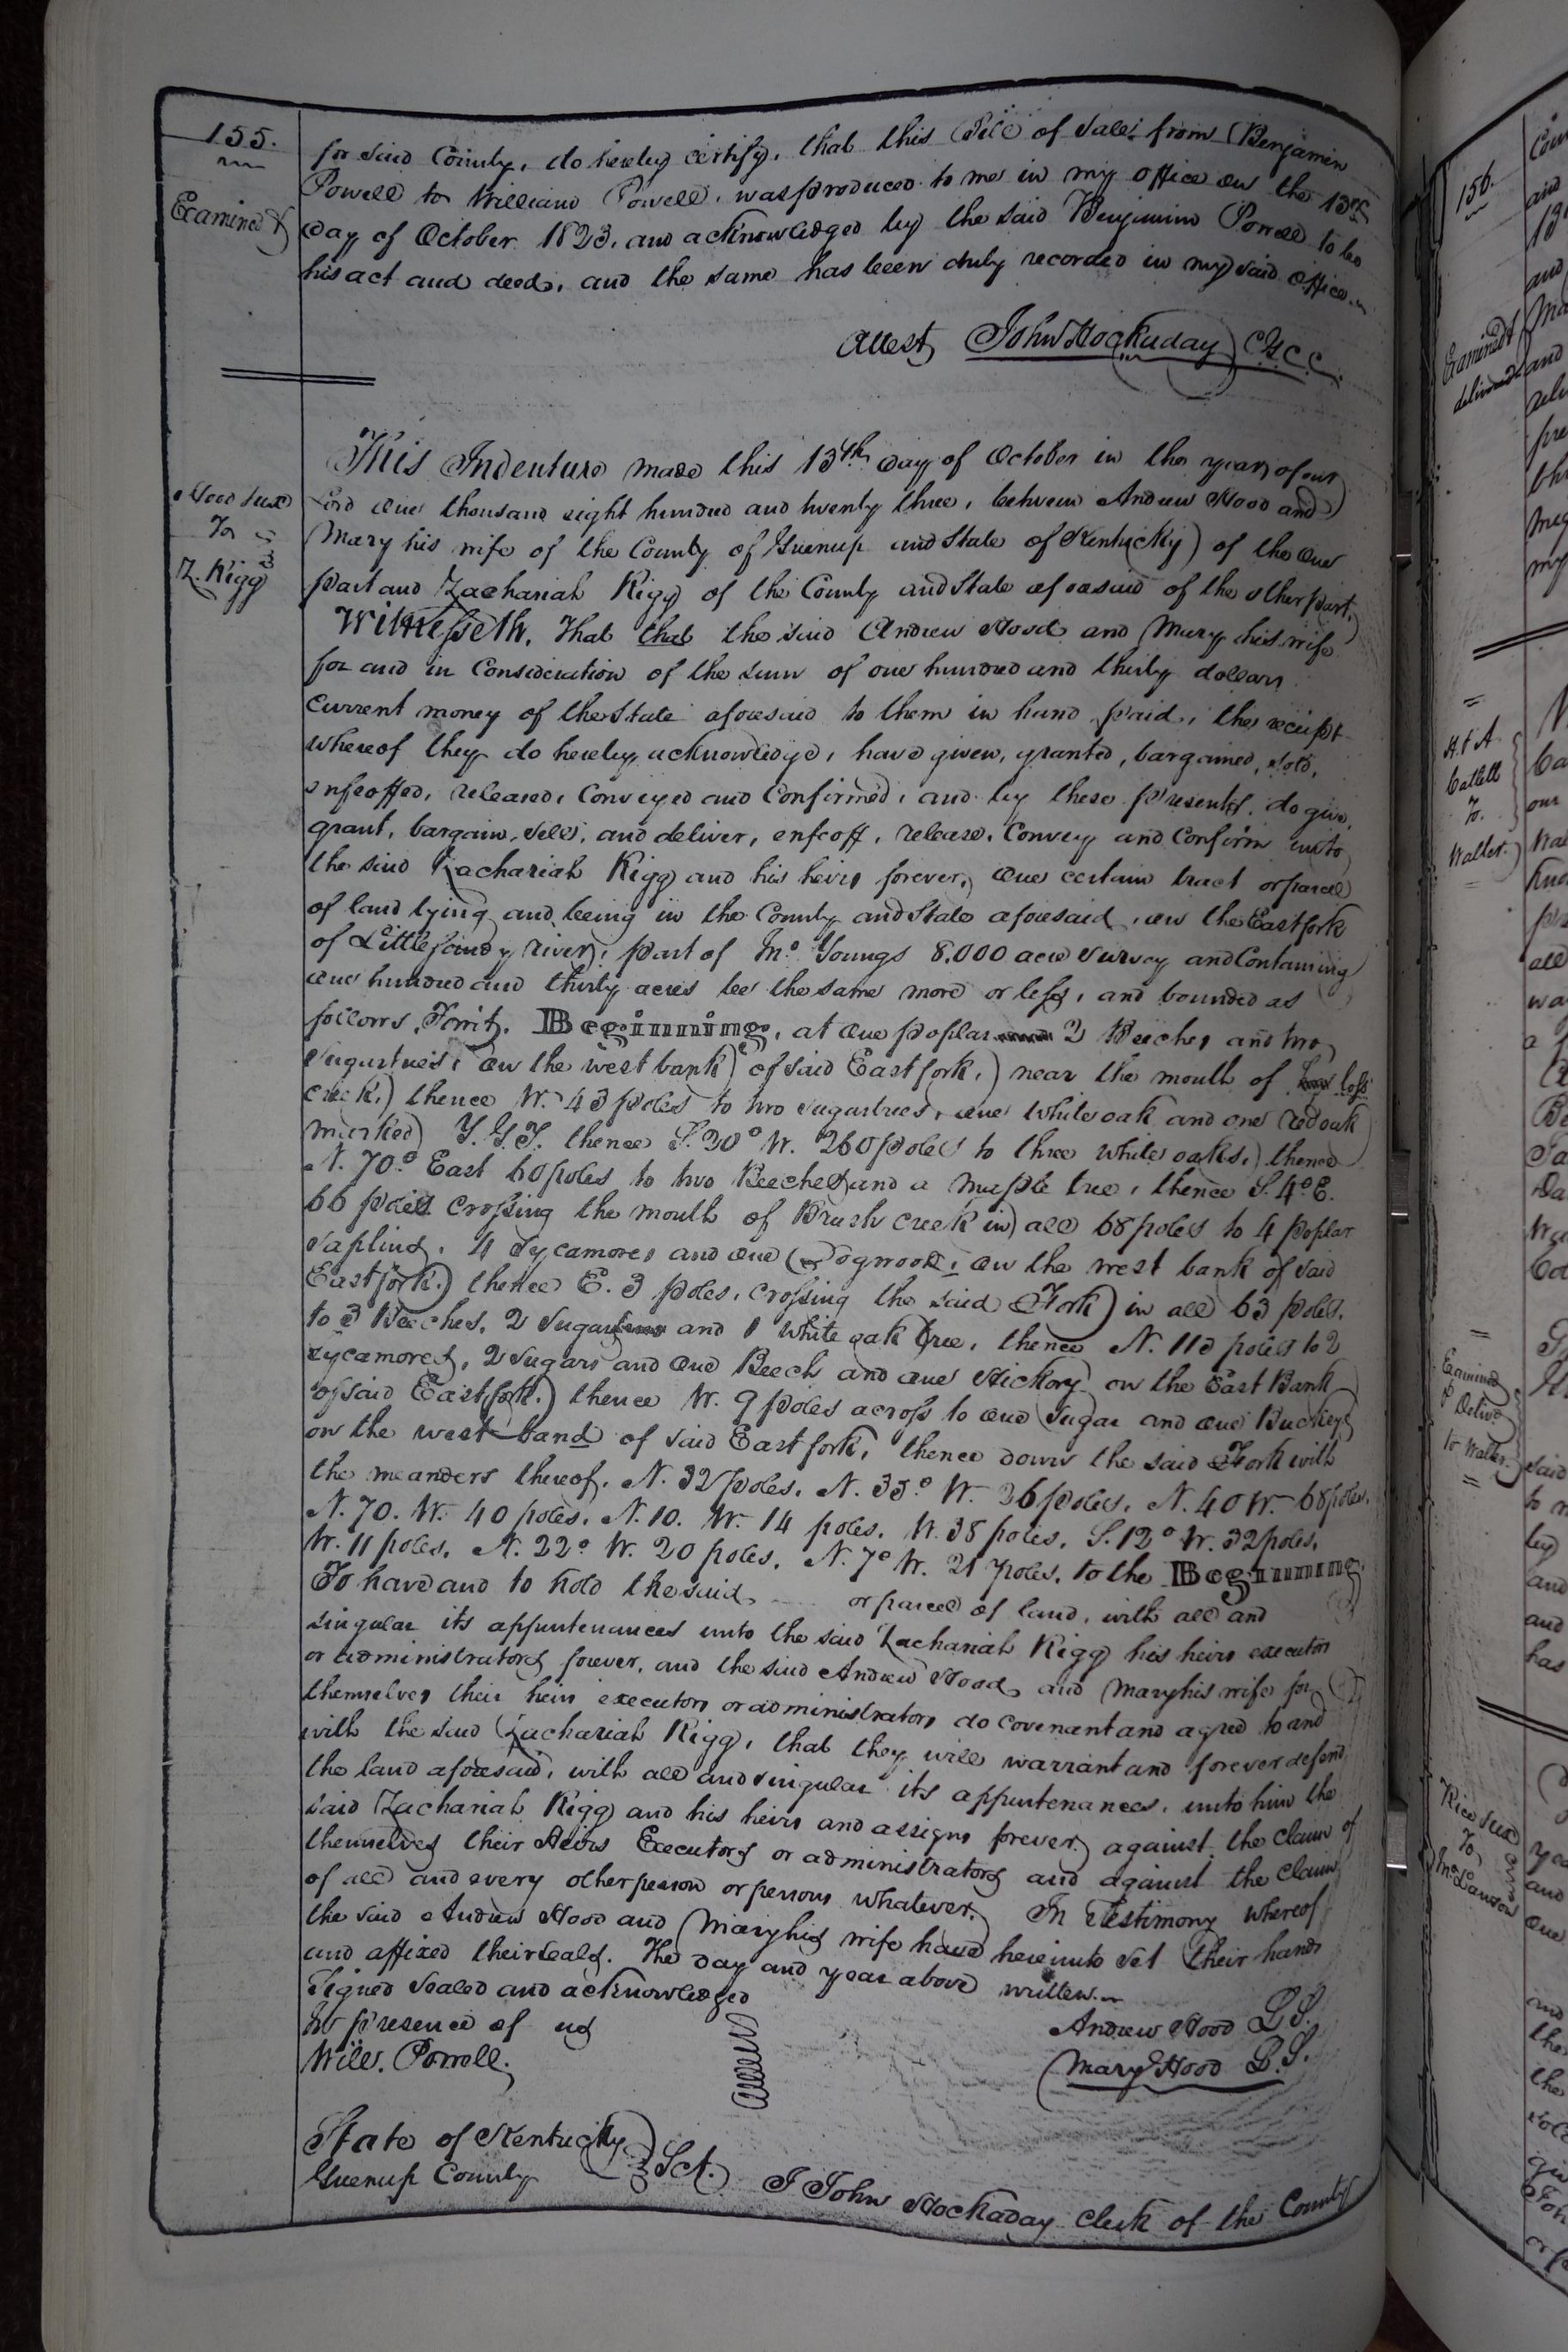 155.
Examined
for said County, do hereby certify, that this Bill of Sale from Benjamin
Powell to William Powell, was produced to me in my office on the 13th
day of October 1823, and acknowledged by the said Benjamin Powell to be
his act and deed, and the same has been duly recorded in my said office.
Attest John Hockaday C.G.C.C.
Hood &ux
To
Z. Rigg
This Indenture made this 13th day of October in the year of our
Lord one thousand eight hundred and twenty three, between Andrew Hood and
Mary his wife of the County of Greenup and State of Kentucky of the one
part and Zachariah Rigg of the County and State aforesaid of the other part,
Witnesseth, That that the said Andrew Hood and Mary his wife
for and in Consideration of the sum of one hundred and thirty dollars
Current money of the State aforesaid to them in hand paid, the receipt
whereof they do hereby acknowledge, have given, granted, bargained, sold,
enfeoffed, released, Conveyed and Confirmed, and by these presents, do give,
grant, bargain, sell, and deliver, enfeoff, release, Convey and Confirm unto
the said Zachariah Rigg and his heirs forever, one certain tract or parcel
of land lying and being in the County and State aforesaid, on the East fork
of Little Sandy river, part of Jno. Youngs 8.000 acre Survey and Containing
one hundred and thirty acres be the same more or less, and bounded as
follows, Towit, Beginning, at one poplar 2 Beeches and two
Sugartrees, on the west bank of said East fork, near the mouth of loss
creek, thence W. 43 poles to two sugartrees, one white oak and one red oak
marked Y.G.T. thence S. 20° W. 260 poles to three white oaks, thence
N. 70° East 60 poles to two Beeches and a maple tree, thence S. 4° E.
66 poles crossing the mouth of Brush creek in all 68 poles to 4 poplar
saplins, 4 Sycamores and one Dogwood, on the west bank of said
East fork, thence E. 3 poles, crossing the said Fork in all 63 poles,
to 3 Beeches, 2 Sugar and 1 white oak tree, thence N. 110 poles to 2
sycamores, 2 Sugars and one Beech and one Hickory on the East Bank
of said East fork, thence W. 9 poles across to one Sugar and one Buckeye
on the west band of said East fork, thence down the said Fork with
the meanders thereof, N. 32 poles, N. 35° W. 26 poles, N. 40 W. 68 poles,
N. 70. W. 40 poles, N. 10. W. 14 poles, W. 38 poles, S. 12° W. 32 poles,
W. 11 poles, N. 22° W. 20 poles, N. 7° W. 21 poles, to the Beginning
To have and to hold the said or parcel of land, with all and
singular its appurtenances unto the said Zachariah Rigg his heirs executors
or administrators forever, and the said Andrew Hood and Mary his wife for
themselves their heirs executors or administrators do covenant and agree to and
with the said Zachariah Rigg, that they will warrant and forever defend
the land aforesaid, with all and singular its appurtenances, unto him the
said Zachariah Rigg and his heirs and assigns forever, against the claim of
themselves their Heirs Executors or administrators and against the claim
of all and every other person or persons whatever. In Testimony whereof
the said Andrew Hood and Mary his wife have hereunto set their hands
and affixed their seals. The day and year above written.
Signed Sealed and acknowledged
in presence of us
Will. Powell.
Andrew Hood L.S.
Mary Hood L.S.
State of Kentucky
Greenup County Sct. I John Hockaday Clerk of the County
156.
Examined &
delivered
H. & A.
Catlett
To.
Waller.
Examined
& Deliv'd
to Waller.
Rice &ux
To